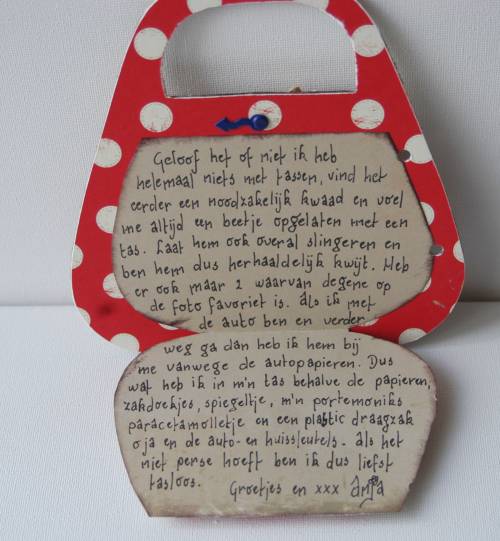 Geloof het of niet ik heb
helemaal niets met tassen, vind het
eerder een noodzakelijk kwaad en voel
me altijd een beetje opgelaten met een
tas. Laat hem ook overal slingeren en
ben hem dus herhaaldelijk kwijt. Heb
er ook maar 2 waarvan degene op
de foto favoriet is. Als ik met
de auto ben en verder
weg ga dan heb ik hem bij
me vanwege de autopapieren. Dus
wat heb ik in m'n tas behalve de papieren,
zakdoekjes, spiegeltje, m'n portemoniks
paracetamolletje en een plastic draagzak
o ja en de auto- en huissleutels. Als het
niet perse hoeft ben ik dus liefst
tasloos.
Groetjes en xxx Anja